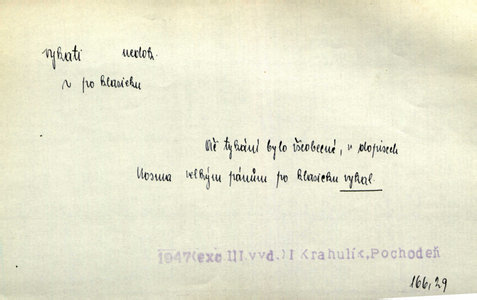 vykati nedok.
v po klasicku
Ač tykání bylo všeobecné, v dopisech
Kosma velkým pánům po klasicku vykal.
1947(exc.III.vyd.)I Krahulík,Pochodeň
166,29